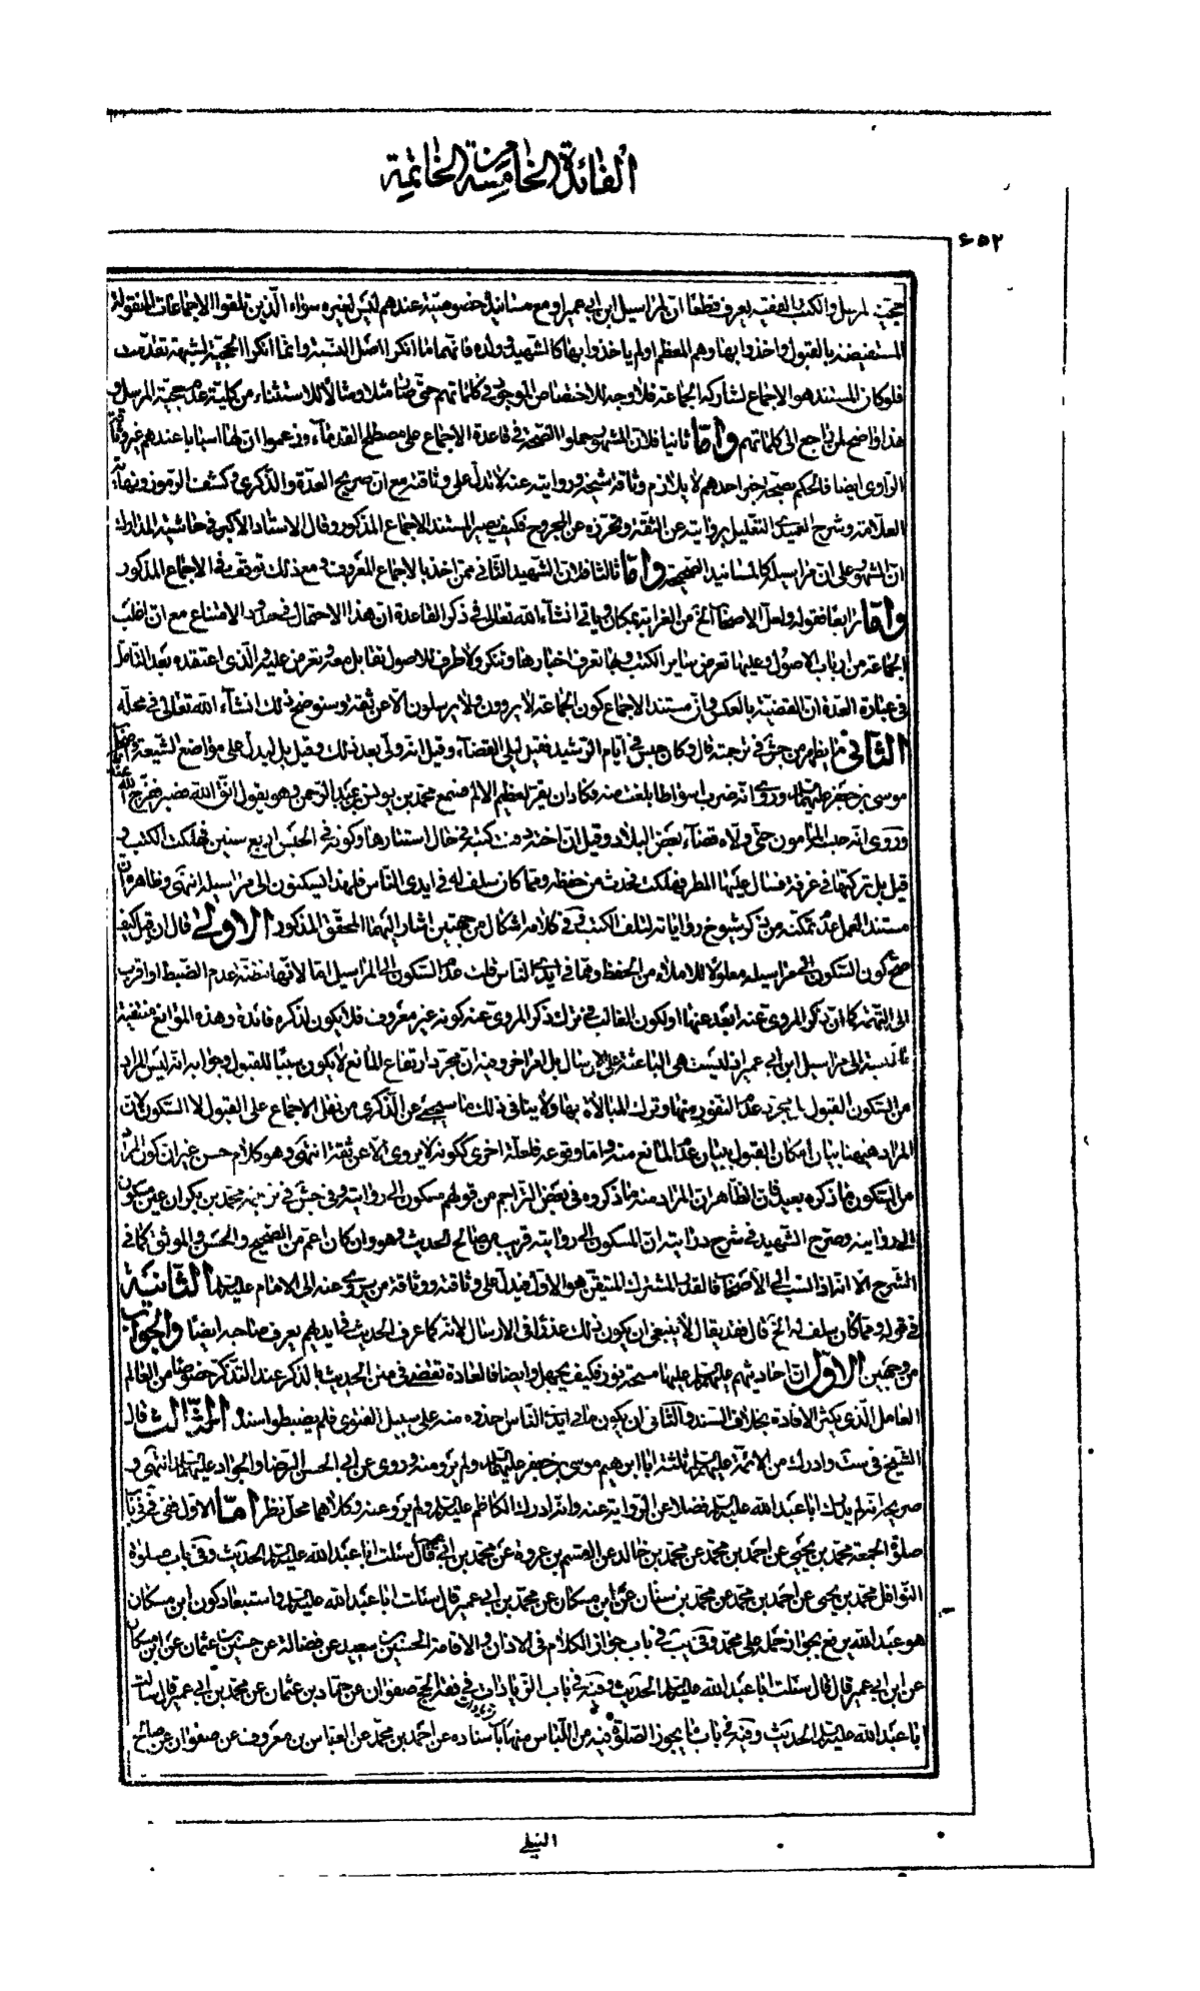 الفائدة الخامسة من الخاتمة
٦٥٢
حجية المرسل والكتب الفقهية يعرف قطعا ان لمراسيل ابن ابي عمير ومع مسانيده خصوصية عندهم ليس لغيره سواء الذين تلقوا الاجماعات المنقولة
المستفيضة بالقبول واخذوا بها وهم المعظم او لم ياخذوا بها كالشهيد وولده فانهما ما انكرا اصل النسبة وانما انكرا الحجية لشبهة تقدمت
فلو كان المستند هو الاجماع لشاركه الجماعة فلا وجه للاختصاص الموجود في كلماتهم حتى صار مثلا ومثالا للاستثناء من كلية عدم حجية المرسل و
هذا واضح لمن راجع الى كلماتهم واما ثانيا فلان المشهور حملوا الصحة في قاعدة الاجماع على مصطلح القدماء وزعموا ان لها اسبابا عندهم غير وثاقة
الراوي ايضا فالحكم بصحة خبر احدهم لا يلازم وثاقة شيخه وروايته عنه لا تدل على وثاقته مع ان صريح العدة والذكرى وكشف الرموز ونهاية
العلامة وشرح العميدي التعليل بروايته عن الثقة وتحرزه عن المجروح فكيف يصير المستند الاجماع المذكور وقال الاستاد الاكبر في حاشية المدارك
ان المشهور على ان مراسيله كالمسانيد الصحيحة واما ثالثا فلان الشهيد الثاني ممن اخذ بالاجماع المعروف ومع ذلك توقف في الاجماع المذكور
واما رابعا فقوله ولعل الاصحاب الخ من الغرابة بمكان وياتي انشاء الله تعالى في ذكر القاعدة ان هذا الاحتمال في حدود الامتناع مع ان اغلب
الجماعة من ارباب الاصول وعليها تعرض سائر الكتب وبها تعرف اخبارها وتنكر ولا طرف للاصول تقابل معه وتعرض عليه والذي اعتقده بعد التامل
في عبارة العدة ان القضية بالعكس وان مستند الاجماع كون الجماعة لا يروون ولا يرسلون الا عن ثقة وسنوضح ذلك انشاء الله تعالى في محله
الثاني ما يظهر من جش في ترجمته قال وكان حبس في ايام الرشيد فقيل ليلي القضاء وقيل انه ولي بعد ذلك وقيل بل ليدل على مواضع الشيعة واصحاب
موسى بن جعفر عليهما السلام وروي انه ضرب اسواطا بلغت منه فكاد ان يقر لعظيم الالم فسمع محمد بن يونس بن عبد الرحمن وهو يقول اتق الله فصبر ففرج الله عنه
وروي انه حبسه المامون حتى ولاه قضاء بعض البلاد وقيل ان اخته دفنت كتبه في حال استتارها وكونه في الحبس اربع سنين فهلكت الكتب و
قيل بل تركتها في غرفة فسال عليها المطر فهلكت فحدث من حفظه ومما كان سلف له في ايدي الناس فلهذا يسكنون الى مراسيله انتهى وظاهره ان
مستند العمل عدم تمكنه من ذكر شيوخ رواياته لتلف الكتب وفي كلامه اشكال من جهتين اشار اليهما المحقق المذكور الاولى قال ان قيل كيف
صح كون السكون الى مراسيله معلولا للاملاء من الحفظ ومما في ايدي الناس قلت عدم السكون الى المراسيل اما لانها مظنة عدم الضبط او اقرب
الى التهمة كما ان ذكر المروي عنه ابعد عنها او لكون الغالب في ترك ذكر المروي عنه كونه غير معروف فلا يكون لذكره فائدة وهذه الموانع منتفية
بالنسبة الى مراسيل ابن ابي عمير اذ ليست هي الباعثة على الارسال بل امر اخر وفيه ان مجرد ارتفاع المانع لا يكون سببا للقبول وجوابه انه ليس المراد
من السكون القبول بل مجرد عدم النفور منها وترك المبالاة بها ولا ينافي ذلك ما سيجئ عن الذكرى من نقل الاجماع على القبول لا السكون لان
المراد هيهنا بيان امكان القبول ببيان عدم المانع منه واما وقوعه فلعلة اخرى ككونه لا يروي الا عن ثقة انتهى وهو كلام حسن غير ان كون المراد
من السكون ما ذكره بعيد فان الظاهر ان المراد منه ما ذكروه في بعض التراجم من قولهم مسكون الى روايته وفي جش في ترجمة محمد بن بكران عين مسكون
الى روايته وصرح الشهيد في شرح درايته ان المسكون الى روايته قريب من صالح الحديث وهو وان كان اعم من الصحيح والحسن والموثق كما في
الشرح الا انه اذا نسب الى الاصحاب فالقدر المشترك المتيقن هو الاول فيدل على وثاقته ووثاقة من يروي عنه الى الامام عليه السلام الثانية
في قوله ومما كان سلف له الخ قال فقد يقال لا ينبغي ان يكون ذلك عذرا في الارسال لانه كما عرف الحديث في ايديهم يعرف صاحبه ايضا والجواب
من وجهين الاول ان احاديثهم عليهم السلام عليها مسحة نور فكيف يجهل وايضا فالعادة تقضي في متن الحديث بالذكر عند التذكر خصوصا من العالم
العامل الذي يكثر الافادة بخلاف السند والثاني ان يكون ما في ايدي الناس اخذوه منه على سبيل الفتوى فلم يضبطوا سنده الثالث قال
الشيخ في ست وادرك من الائمة عليهم السلام ثلثة ابا ابراهيم موسى بن جعفر عليهما السلام ولم يرو عنه وروى عن ابي الحسن الرضا والجواد عليهما السلام انتهى و
صريحه انه لم يدرك ابا عبد الله عليه السلام فضلا عن الرواية عنه وانه ادرك الكاظم عليه السلام ولم يرو عنه وكلاهما محل نظر اما الاول ففي في باب
صلوة الجمعة محمد بن يحيى عن احمد بن محمد عن محمد بن خالد عن القسم بن عروة عن محمد بن ابي عمير قال سئلت ابا عبد الله عليه السلام الحديث وفي باب صلوة
النوافل محمد بن يحيى عن احمد بن محمد عن محمد بن سنان عن ابن مسكان عن محمد بن ابي عمير قال سئلت ابا عبد الله عليه السلام واستبعاد كون ابن مسكان
هو عبد الله يرفع بجواز حمله على محمد وفي يب في باب جواز الكلام في الاذان والاقامة الحسين بن سعيد عن فضالة عن حسين بن عثمان عن ابن مسكان
عن ابن ابي عمير قال قال سئلت ابا عبد الله عليه السلام الحديث وفيه في باب الزيادات في فقه الحج صفوان عن حماد بن عثمان عن محمد بن ابي عمير قال سئلت
ابا عبد الله عليه السلام الحديث وفيه في باب ما يجوز الصلوة فيه من اللباس منها باسناده عن احمد بن محمد عن العباس بن معروف عن صفوان عن صالح
النيلي